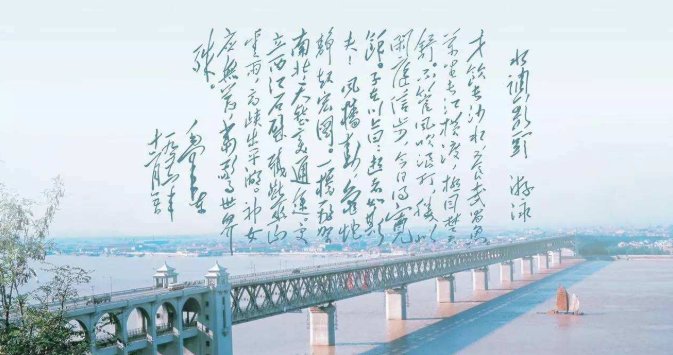 水调歌头 游泳
才饮长沙水 又食武昌鱼
万里长江横渡 极目楚天
舒 不管风吹浪打 胜似
闲庭信步 今日得宽
馀。子在川上曰:逝者如斯
夫!风樯动 龟蛇
静 起宏图。一桥飞架
南北 天堑变通途 更
立西江石壁 截断巫山
云雨 高峡出平湖 神女
应无恙 当惊世界
殊。
毛泽东
一九五六年
十二月